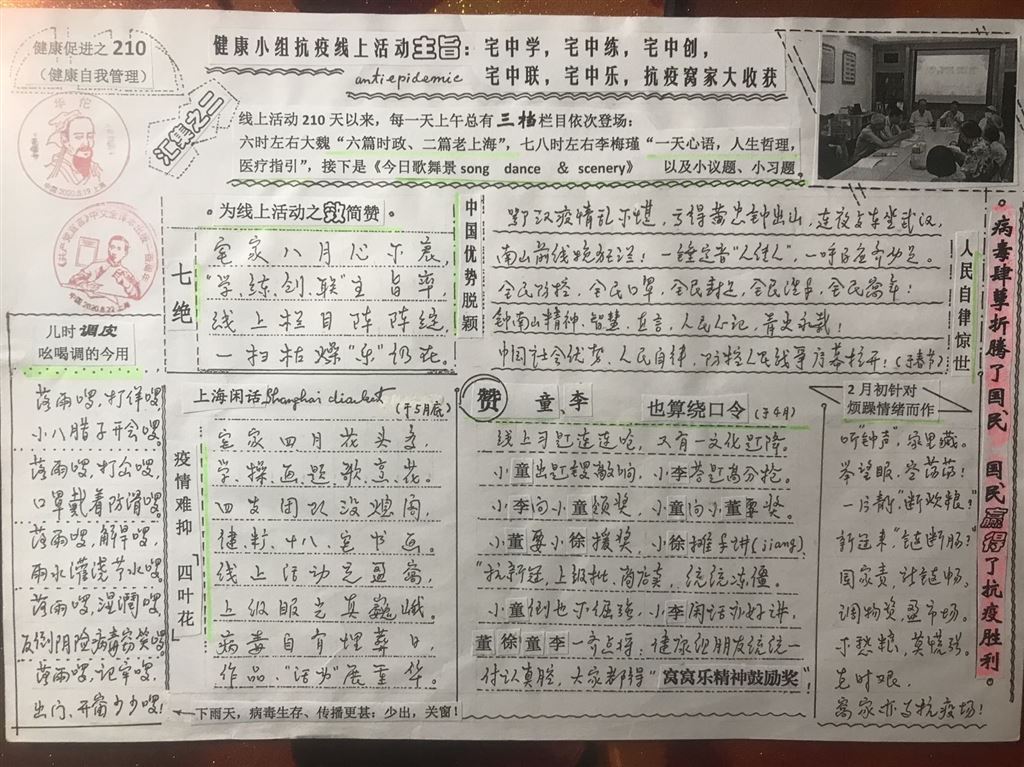 健康促进之 210
（健康自我管理）
汇集之二
健康小组抗疫线上活动主旨：宅中学，宅中练，宅中创，
antiepidemic 宅中联，宅中乐，抗疫窝家大收获
线上活动 210 天以来，每一天上午总有三档栏目依次登场：
六时左右大魏“六篇时政、二篇老上海”，七八时左右李梅瑾“一天心语，人生哲理，
医疗指引”，接下是《今日歌舞景 song dance & scenery》 以及小议题、小习题。
华佗
中国 2020.8.19 上海
中国 2020.8.22 上海
·为线上活动之效简赞·
七绝
宅家八月心不衰，
“学、练、创、联”主旨率，
线上栏目阵阵绽，
一扫枯燥“乐”仍在。
中国优势脱颖
武汉疫情乱不堪，亏得黄忠钟出山，连夜上车坐武汉，
南山前线挽狂澜！一锤定音“人传人”，
全民防控，全民口罩，全民封足，全民洗手，全民窝牢！
钟南山精神、智慧、直言，人民心记，青史永载！
中国社会优势、人民自律，防控人民战争序幕拉开！(于春节)
人民自律惊世
病毒肆孽折腾了国民 国民赢得了抗疫胜利。
儿时调皮
吆喝调的今用
落雨嗖，打烊嗖，
小八腊子开会嗖。
落雨嗖，打伞嗖，
口罩戴着防滑嗖。
落雨嗖，解旱嗖，
雨水灌浇节水嗖。
落雨嗖，湿润嗖，
反倒阴险病毒窃笑嗖。
落雨嗖，记牢嗖，
出门、开窗少少嗖！
下雨天，病毒生存、传播更甚：少出，关窗！
上海闲话 Shanghai dialect (于5月底)
疫情难抑「四叶花」
宅家四月花头多，
学、操、画、题、歌、烹、花。
四支团队没熄阁，
健、村、十八、宅书画。
线上活动足盈窝，
上级眼光真巍峨。
病毒自有埋葬日，
作品、“活力”展重华。
赞 童、李 也算绕口令 (于4月)
线上习题连连呛，又有一文化题降。
小童出题锣敲响，小李答题高分抢。
小李向小童颁奖，小童向小董要奖。
小董要小徐援奖，小徐摊手讲(jiang)
“抗新冠，上级批、商店卖，统统冻僵。
小童倒也不倔强，小李闲话亦好讲，
董徐童李一齐点将，健康组朋友统统一
付认真腔，大家都得“窝窝乐精神鼓励奖”！
2 月初针对
烦躁情绪而作
听“钟声”，家里藏。
举望眼，空荡荡！
一片静，“断炊粮”？
新冠来，“链断肠”？
国家责，计谋畅。
调物资，盈市场。
不愁粮，莫慌张。
窝家亦为抗疫场！